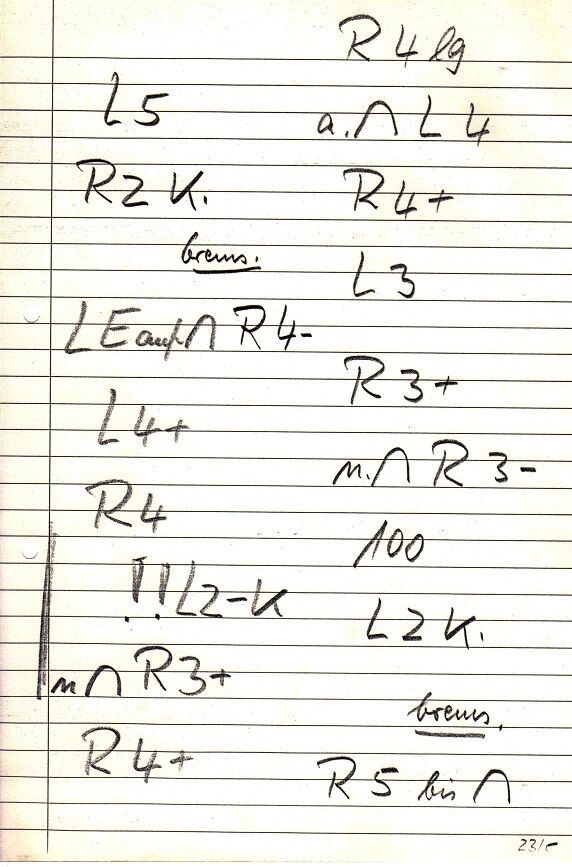 L5
R2 K.
brems.
LE auf ∩ R4-
L4+
R4
!!L2-K
n ∩ R3+
R4+
R4 lg
a. ∩ L4
R4+
L3
R3+
n. ∩ R3-
100
L2 K.
brems.
R5 bis ∩